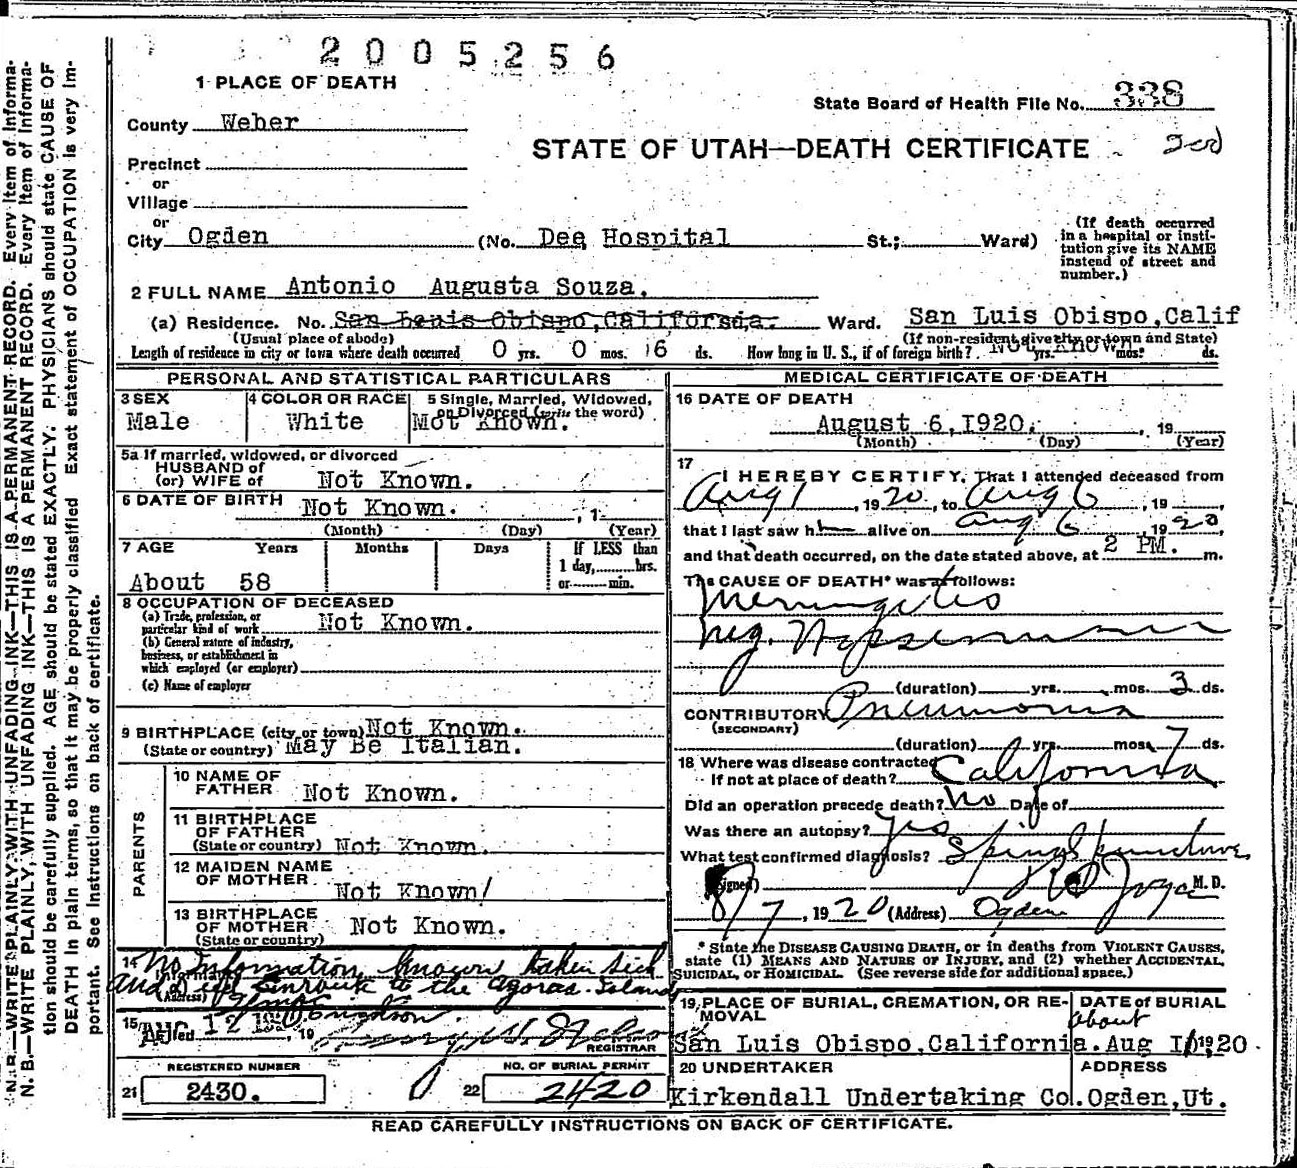 2005256
1 PLACE OF DEATH
State Board of Health File No. 338
County Weber
STATE OF UTAH—DEATH CERTIFICATE
Precinct
or
Village
or
City Ogden (No. Dee Hospital St.; Ward)
(If death occurred in a hospital or insti-
tution give its NAME instead of street and number.)
2 FULL NAME Antonio Augusta Souza.
(a) Residence. No. San Louis Obispo, California. Ward. San Luis Obispo,Calif
(Usual place of abode) (If non-resident give city or town and State)
Length of residence in city or town where death occurred 0 yrs. 0 mos. 6 ds. How long in U. S., if of foreign birth? Not Known yrs. mos. ds.
PERSONAL AND STATISTICAL PARTICULARS
3 SEX Male
4 COLOR OR RACE White
5 Single, Married, Widowed, or Divorced (write the word) Not Known.
5a If married, widowed, or divorced
HUSBAND of
(or) WIFE of Not Known.
6 DATE OF BIRTH Not Known. , 1
(Month) (Day) (Year)
7 AGE Years Months Days If LESS than 1 day, hrs. or min.
About 58
8 OCCUPATION OF DECEASED
(a) Trade, profession, or particular kind of work Not Known.
(b) General nature of industry, business, or establishment in which employed (or employer)
(c) Name of employer
9 BIRTHPLACE (city or town) Not Known.
(State or country) May Be Italian.
PARENTS
10 NAME OF FATHER Not Known.
11 BIRTHPLACE OF FATHER (State or country) Not Known.
12 MAIDEN NAME OF MOTHER Not Known/
13 BIRTHPLACE OF MOTHER (State or country) Not Known.
14 No Information known taken sick
and Died Enroute to the Agoras Island
(Address)
15 Filed AUG 12 , 19
REGISTRAR
REGISTERED NUMBER
21 2430.
NO. OF BURIAL PERMIT
22 2420
MEDICAL CERTIFICATE OF DEATH
16 DATE OF DEATH
August 6,1920. , 19
(Month) (Day) (Year)
17
I HEREBY CERTIFY, That I attended deceased from
Aug 1 , 1920, to Aug 6 , 19
that I last saw h alive on Aug 6 , 1920
and that death occurred, on the date stated above, at 2 PM. m.
The CAUSE OF DEATH* was as follows:
Meningitis
(duration) yrs. mos. 3 ds.
CONTRIBUTORY Pneumonia
(SECONDARY)
(duration) yrs. mos. 7 ds.
18 Where was disease contracted
If not at place of death? California
Did an operation precede death? No Date of
Was there an autopsy? yes
What test confirmed diagnosis? Spinal puncture
(Signed) Joyce M. D.
8/7, 1920 (Address) Ogden
* State the DISEASE CAUSING DEATH, or in deaths from VIOLENT CAUSES,
state (1) MEANS AND NATURE OF INJURY, and (2) whether ACCIDENTAL,
SUICIDAL, or HOMICIDAL. (See reverse side for additional space.)
19 PLACE OF BURIAL, CREMATION, OR RE-
MOVAL
San Luis Obispo,California.
DATE of BURIAL
about
Aug 10 1920.
20 UNDERTAKER
Kirkendall Undertaking Co.
ADDRESS
Ogden,Ut.
READ CAREFULLY INSTRUCTIONS ON BACK OF CERTIFICATE.
N. B.—WRITE PLAINLY, WITH UNFADING INK—THIS IS A PERMANENT RECORD. Every item of informa-
tion should be carefully supplied. AGE should be stated EXACTLY. PHYSICIANS should state CAUSE OF
DEATH in plain terms, so that it may be properly classified. Exact statement of OCCUPATION is very im-
portant. See instructions on back of certificate.